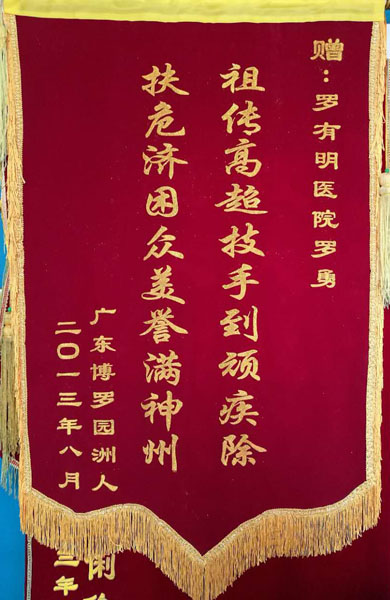 赠：罗有明医院罗勇
祖传高超技手到顽疾除
扶危济困众美誉满神州
广东博罗园洲人
二〇一三年八月
三年